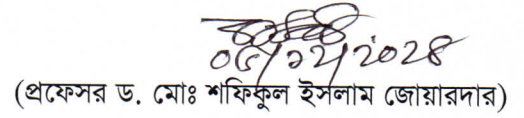 ০৫/১২/২০২৪
(প্রফেসর ড. মোঃ শফিকুল ইসলাম জোয়ারদার)